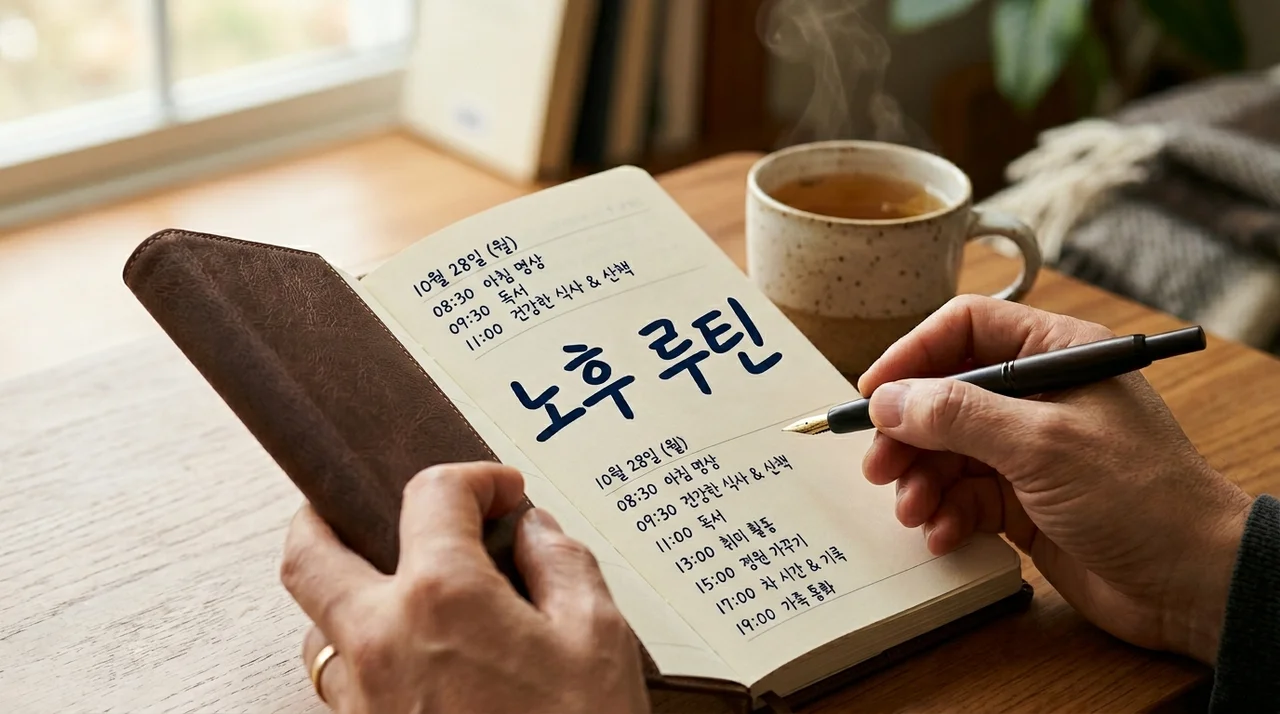 10월 28일 (월)
08:30 아침 명상
09:30 독서
11:00 건강한 식사 & 산책
노후 루틴
10월 28일 (월)
08:30 아침 명상
09:30 건강한 식사 & 산책
11:00 독서
13:00 취미 활동
15:00 정원 가꾸기
17:00 차 시간 & 기록
19:00 가족 통화